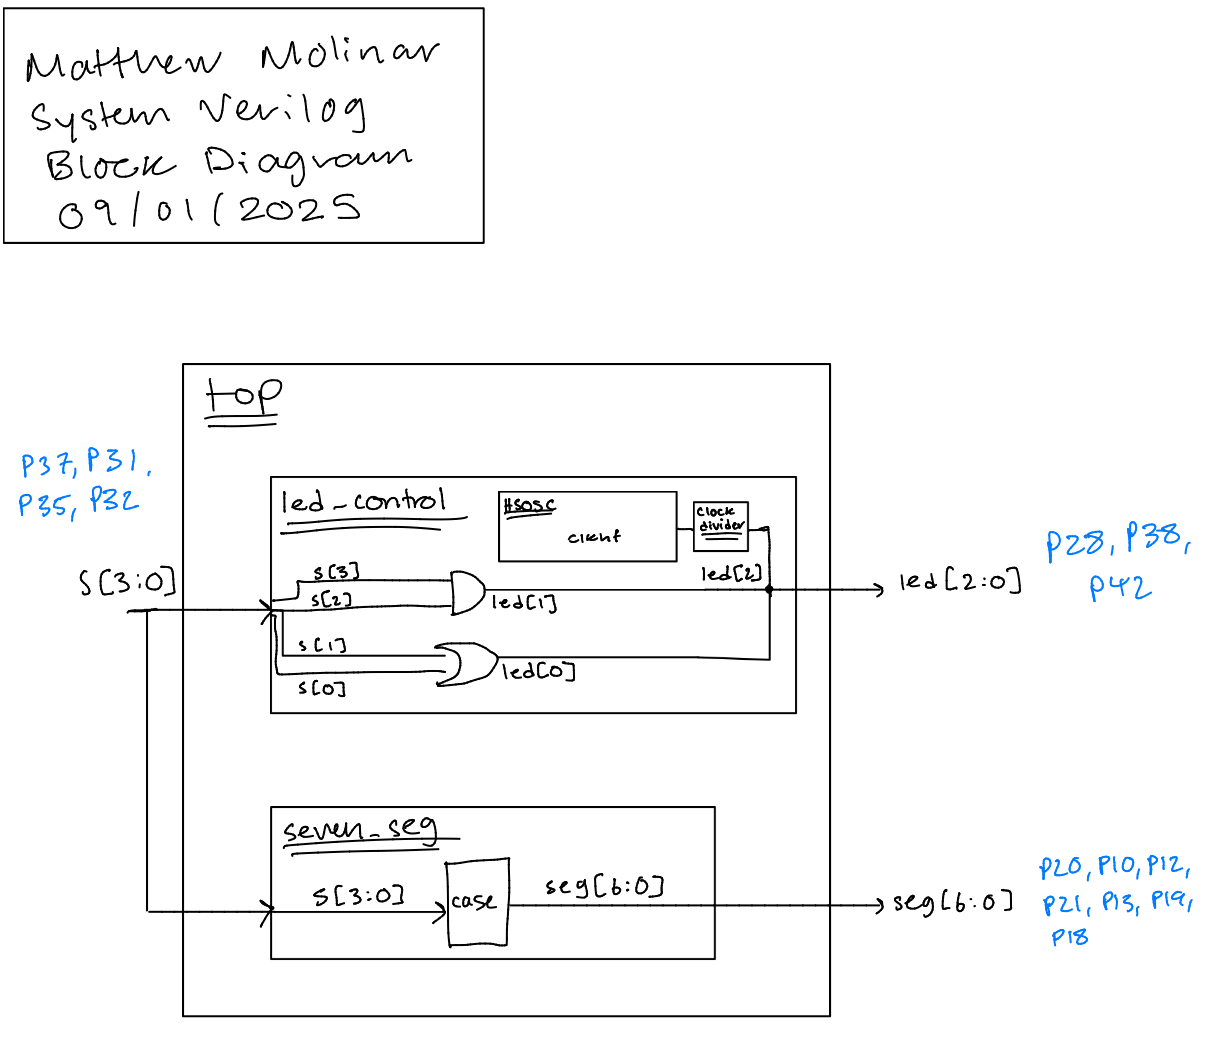 Matthew Molinar
System Verilog
Block Diagram
09/01/2025
top
P37, P31,
P35, P32
led_control
HSOSC
clkhf
clock
divider
P28, P38,
P42
S[3:0]
s[3]
s[2]
led[1]
led[2]
led[2:0]
s[1]
s[0]
led[0]
seven_seg
S[3:0]
case
seg[6:0]
seg[6:0]
P20, P10, P12,
P21, P13, P19,
P18